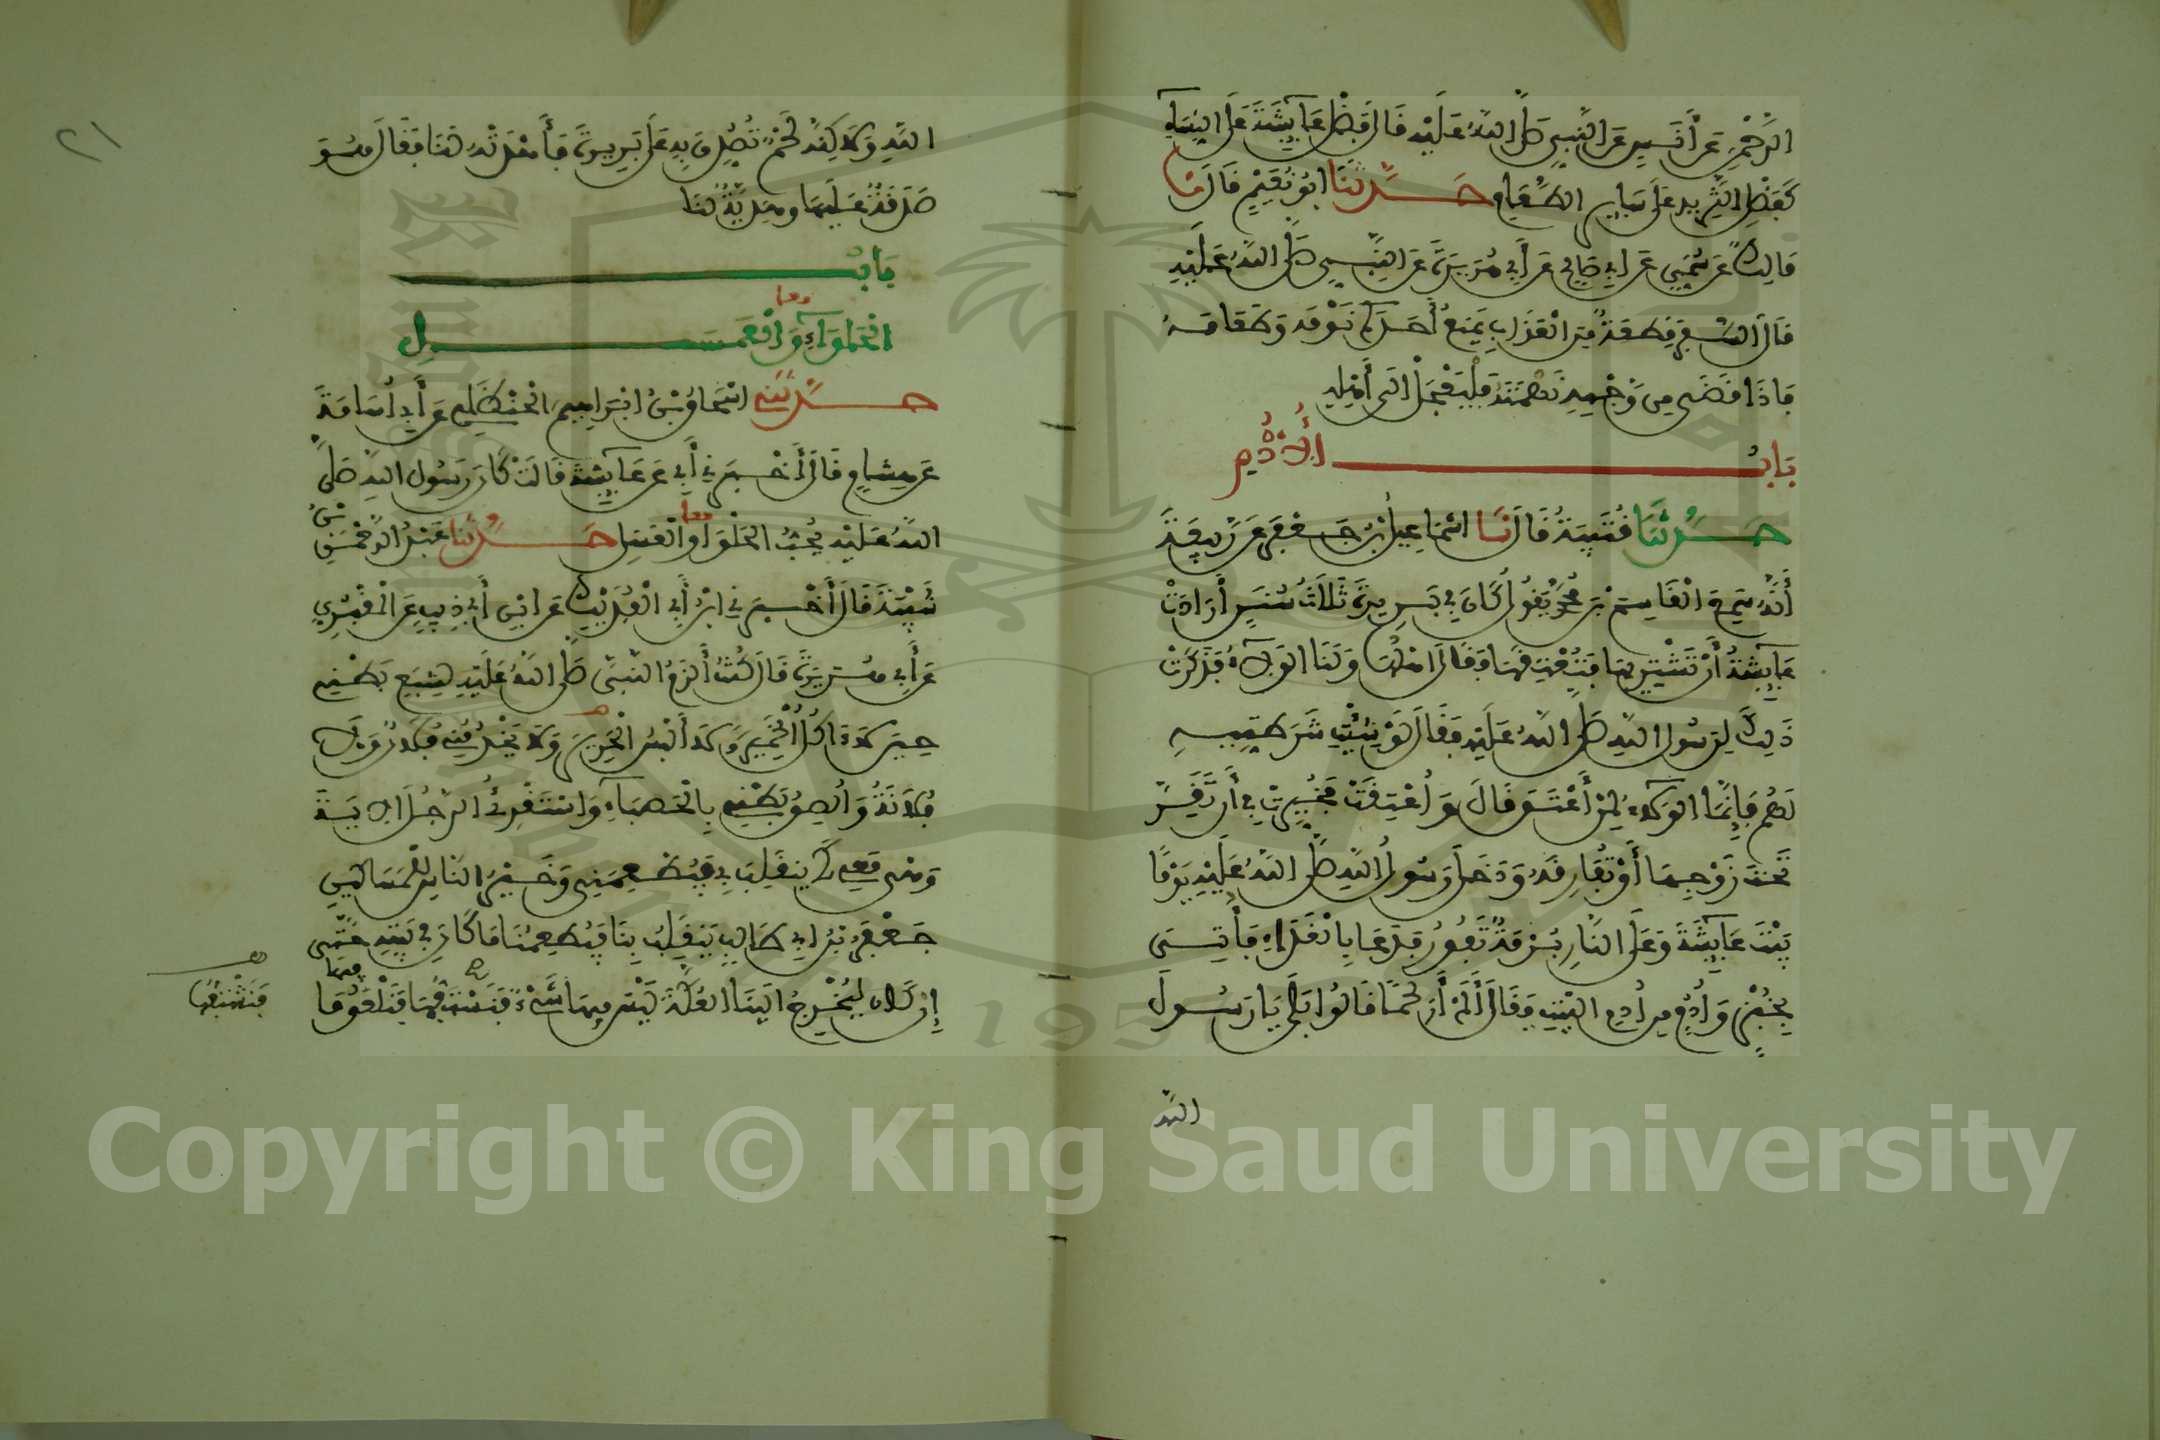 الرَّحْمٰنِ عَنْ أَنَسٍ عَنِ النَّبِيِّ صَلَّى اللهُ عَلَيْهِ قَالَ فَضْلُ عَايِشَةَ عَلَى النِّسَاءِ
كَفَضْلِ الثَّرِيدِ عَلَى سَايِرِ الطَّعَامِ حَدَّثَنَا أَبُو نُعَيْمٍ قَالَ نَا
مَالِكٌ عَنْ سُمَيٍّ عَنْ أَبِي صَالِحٍ عَنْ أَبِي هُرَيْرَةَ عَنِ النَّبِيِّ صَلَّى اللهُ عَلَيْهِ
قَالَ السَّفَرُ قِطْعَةٌ مِنَ الْعَذَابِ يَمْنَعُ أَحَدَكُمْ نَوْمَهُ وَطَعَامَهُ
فَإِذَا قَضَى مِنْ وَجْهِهِ نَهْمَتَهُ فَلْيُعَجِّلْ إِلَى أَهْلِهِ
بَابُ الْأُدُمِ
حَدَّثَنَا قُتَيْبَةُ قَالَ نَا إِسْمَاعِيلُ بْنُ جَعْفَرٍ عَنْ رَبِيعَةَ
أَنَّهُ سَمِعَ الْقَاسِمَ بْنَ مُحَمَّدٍ يَقُولُ كَانَ فِي بَرِيرَةَ ثَلَاثُ سُنَنٍ أَرَادَتْ
عَايِشَةُ أَنْ تَشْتَرِيَهَا فَتُعْتِقَهَا فَقَالَ أَهْلُهَا وَلَنَا الْوَلَاءُ فَذَكَرَتْ
ذَلِكَ لِرَسُولِ اللهِ صَلَّى اللهُ عَلَيْهِ فَقَالَ لَوْ شِئْتِ شَرَطْتِيهِ
لَهُمْ فَإِنَّمَا الْوَلَاءُ لِمَنْ أَعْتَقَ قَالَ وَأُعْتِقَتْ فَخُيِّرَتْ فِي أَنْ تَقِرَّ
تَحْتَ زَوْجِهَا أَوْ تُفَارِقَهُ وَدَخَلَ رَسُولُ اللهِ صَلَّى اللهُ عَلَيْهِ يَوْمًا
بَيْتَ عَايِشَةَ وَعَلَى النَّارِ بُرْمَةٌ تَفُورُ فَدَعَا بِالْغَدَاءِ فَأُتِيَ
بِخُبْزٍ وَأُدْمٍ مِنْ أُدْمِ الْبَيْتِ فَقَالَ أَلَمْ أَرَ لَحْمًا قَالُوا بَلَى يَا رَسُولَ
الله
٢١
اللهِ وَلَاكِنَّهُ لَحْمٌ تُصُدِّقَ بِهِ عَلَى بَرِيرَةَ فَأَهْدَتْهُ لَنَا فَقَالَ هُوَ
صَدَقَةٌ عَلَيْهَا وَهَدِيَّةٌ لَنَا
بَابُ
معا
الْحَلْوَاءِ وَالْعَسَلِ
حَدَّثَنِي إِسْحَاقُ بْنُ إِبْرَاهِيمَ الْحَنْظَلِيُّ عَنْ أَبِي أُسَامَةَ
عَنْ هِشَامٍ قَالَ أَخْبَرَنِي أَبِي عَنْ عَايِشَةَ قَالَتْ كَانَ رَسُولُ اللهِ صَلَّى
معا
اللهُ عَلَيْهِ يُحِبُّ الْحَلْوَا وَالْعَسَلَ حَدَّثَنَا عَبْدُ الرَّحْمَنِ بْنُ
شَيْبَةَ قَالَ أَخْبَرَنِي ابْنُ أَبِي الْفُدَيْكِ عَنِ ابْنِ أَبِي ذِيبٍ عَنِ الْمَقْبُرِيِّ
عَنْ أَبِي هُرَيْرَةَ قَالَ كُنْتُ أَلْزَمُ النَّبِيَّ صَلَّى اللهُ عَلَيْهِ لِشِبَعِ بَطْنِي
حِينَ لَا آكُلُ الْخَمِيرَ وَلَا أَلْبَسُ الْحَرِيرَ وَلَا يَخْدُمُنِي فُلَانٌ وَلَا
فُلَانَةُ وَأُلْصِقُ بَطْنِي بِالْحَصْبَاءِ وَأَسْتَقْرِئُ الرَّجُلَ الْآيَةَ
وَهْيَ مَعِي كَيْ يَنْقَلِبَ بِي فَيُطْعِمَنِي وَخَيْرُ النَّاسِ لِلْمَسَاكِينِ
جَعْفَرُ بْنُ أَبِي طَالِبٍ يَنْقَلِبُ بِنَا فَيُطْعِمُنَا مَا كَانَ فِي بَيْتِهِ حَتَّى
إِنْ كَانَ لَيُخْرِجُ إِلَيْنَا الْعُكَّةَ لَيْسَ فِيهَا شَيْءٌ فَنَشْتَفُّهَا فَنَلْعَقُ مَا
فيها
فَنَشْتَفُّهَا
Copyright © King Saud University
1957